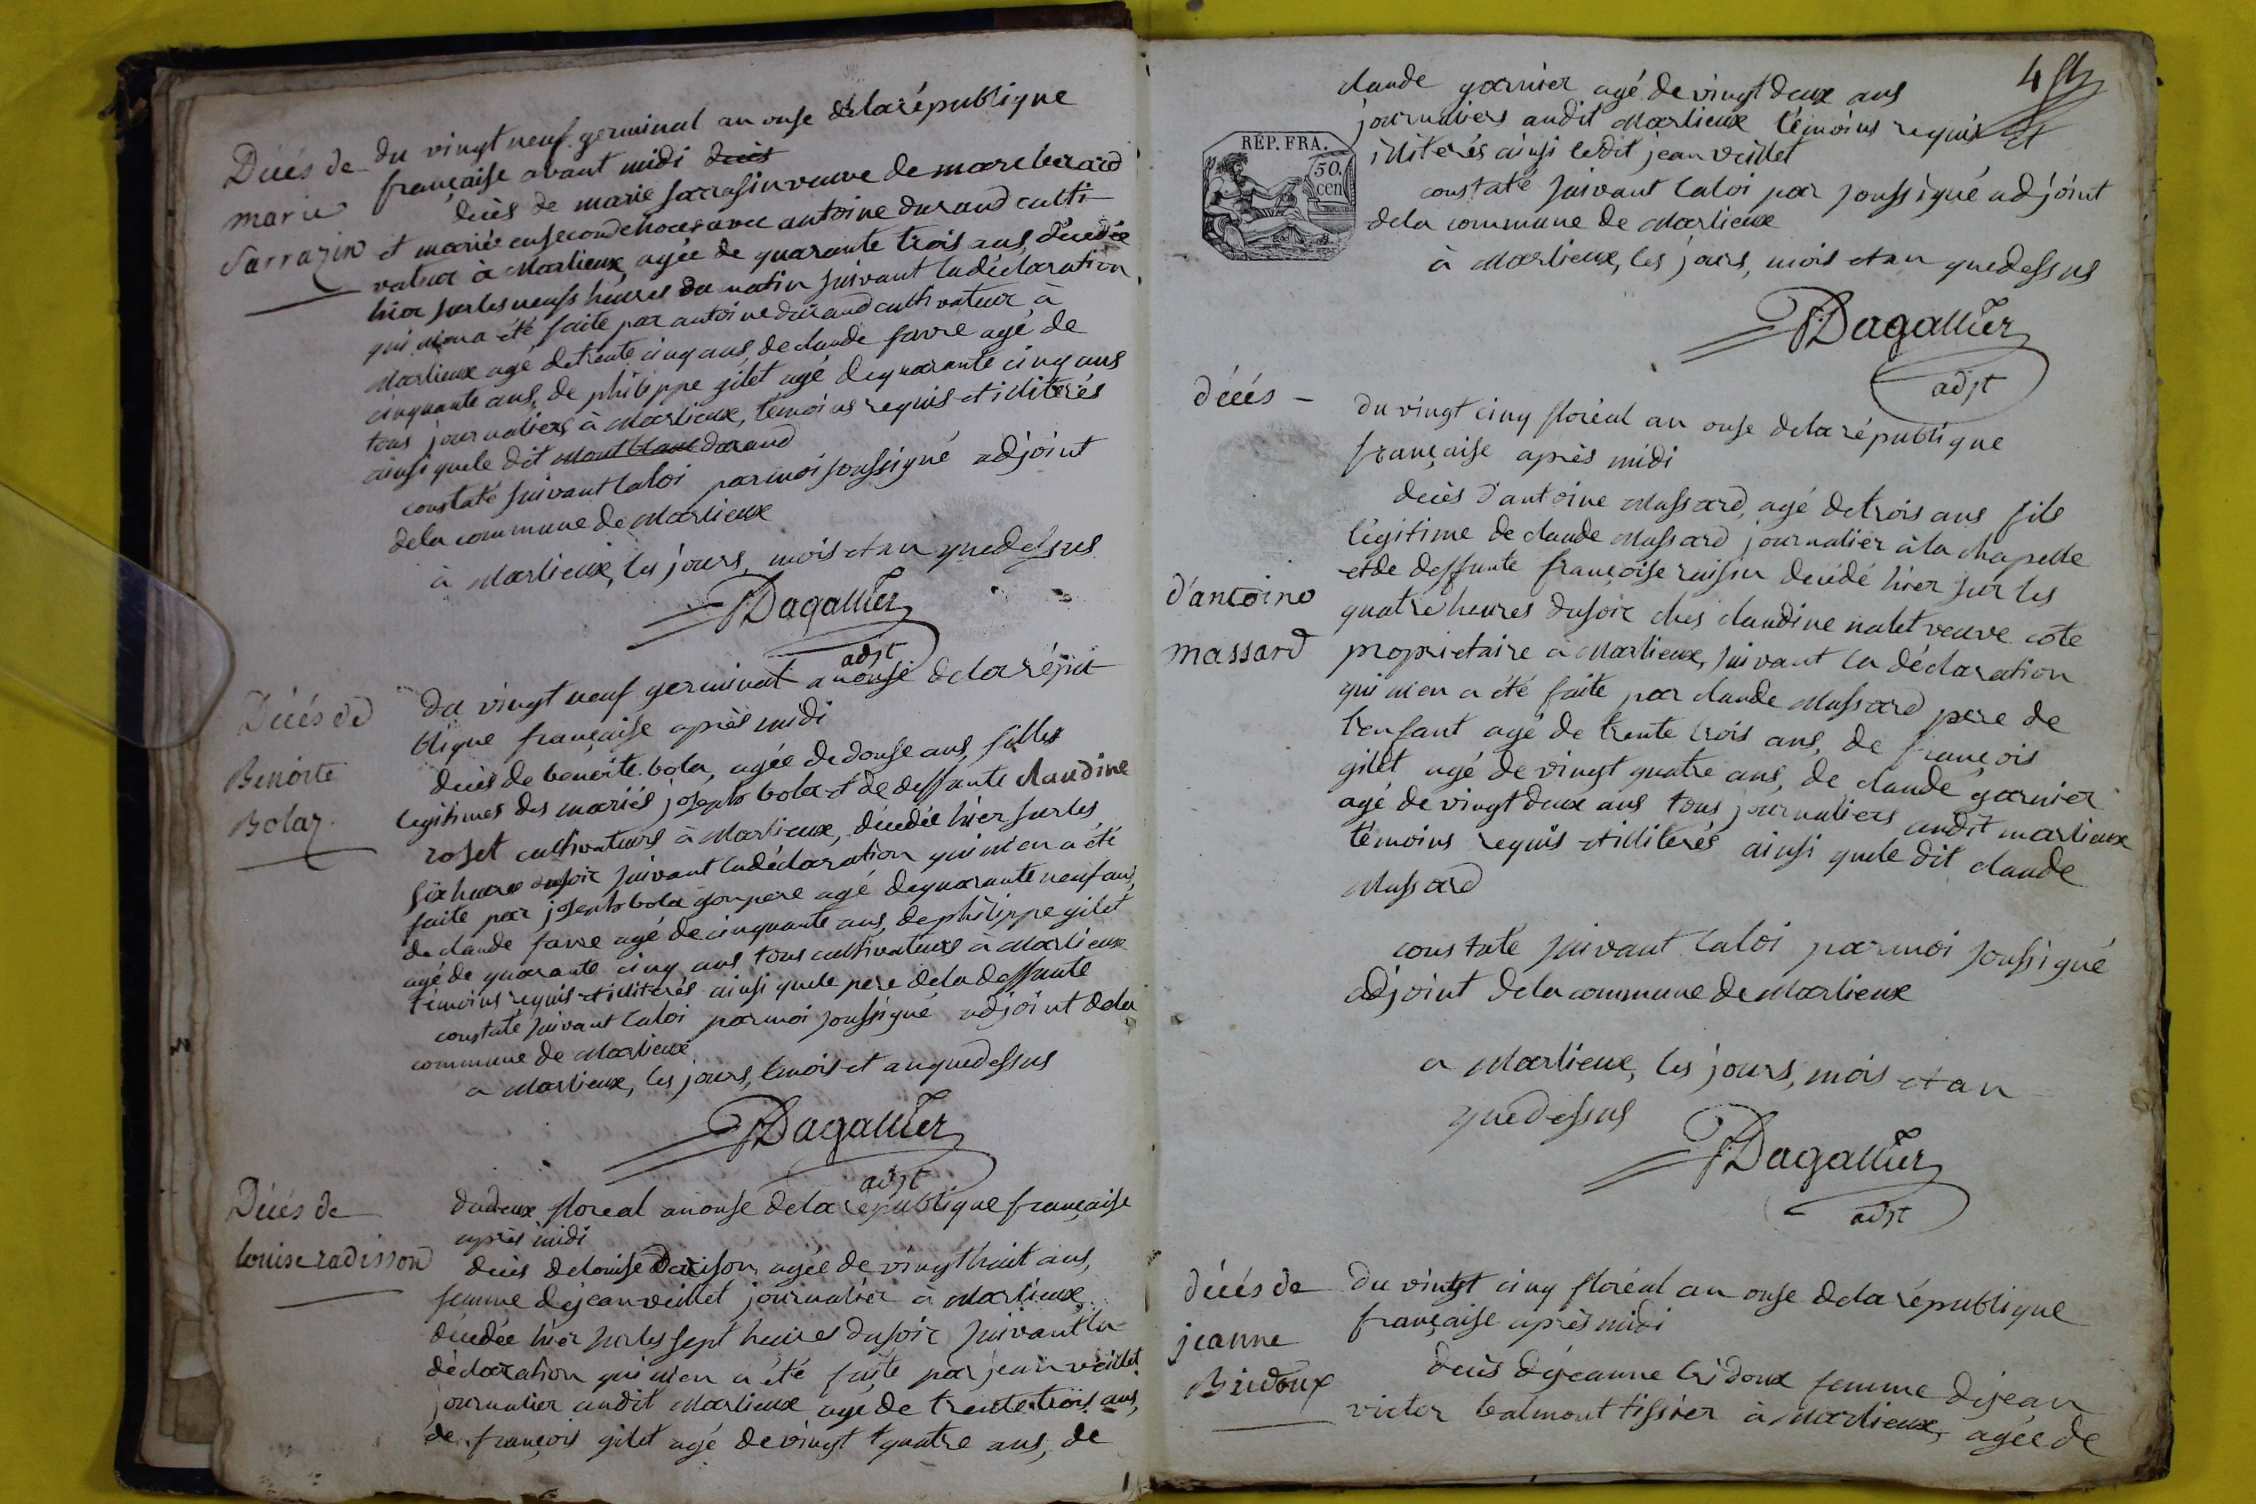 Décés de
marie
Sarrazin
du vingt neuf germinal an onse dela république
française avant midi decès
decès de marie sarrasin veuve de marc berard
et mariée ensecondenoces avec antoine durand culti-
vateur à Marlieux, agée de quarante trois ans, décedée
hier surles neufs heures du matin suivant ladéclaration
qui m'en a été faite par antoine durand cultivateur à
Marlieux agé detrente cinq ans, declaude favre agé de
cinquante ans, de philippe gilet agé dequarante cinq ans
tous journaliers à Marlieux, témoins requis et illiterés
ainsi quele dit durand
constaté suivant laloi par moi soussigné adjoint
dela commune de Marlieux
à Marlieux, les jours, mois et an quedessus
Dagallier
adjt
Décés de
Benoite
Bolaz.
du vingt neuf germinal an onse dela répu-
blique française après midi
decès de benoite bola, agée dedouse ans, fille
legitimes des mariés joseph bola et de deffunte claudine
roset cultivateurs à Marlieux, décedée hier surles
six heures dusoir suivant ladéclaration qui m'en a été
faite par joseph bola son pere agé dequarante neuf ans,
de claude favre agé de cinquante ans, dephilippe gilet
agé de quarante cinq ans tous cultivateurs à Marlieux
témoins requis et illiterés ainsi quele pere dela deffunte
constaté suivant laloi par moi soussigné adjoint dela
commune de Marlieux
a Marlieux, les jours, mois et an quedessus
Dagallier
adjt
Décés de
louise radisson
du deux floreal an onse dela republique française
après midi
decès delouise radison agée de vingt huit ans,
femme dejean veillet journalier à Marlieux,
décedée hier surles sept heures dusoir suivant la
déclaration qui m'en a été faite par jean veillet
journalier audit Marlieux agé de trente trois ans,
de françois gilet agé de vingt quatre ans, de
4
claude garnier agé de vingt deux ans
journaliers audit Marlieux témoins requis et
illiterés ainsi ledit jean veillet
constaté suivant laloi par soussigné adjoint
dela commune de Marlieux
à Marlieux, les jours, mois et an quedessus
RÉP. FRA.
50.
cen
Dagallier
adjt
décés -
d'antoine
massard
du vingt cinq floréal an onse dela république
française après midi
decès d'antoine Massard, agé detrois ans fils
légitime de claude Massard journalier à la chapelle
et de deffunte françoise raisin decédé hier sur les
quatre heures dusoir ches claudine nalet veuve cote
proprietaire à Marlieux, suivant la déclaration
qui m'en a été faite par claude Massard pere de
l'enfant agé de trente trois ans, de françois
gilet agé de vingt quatre ans, de claude garnier
agé de vingt deux ans tous journaliers audit marlieux
témoins requis et illiterés ainsi quele dit claude
Massard
constaté suivant laloi par moi soussigné
adjoint dela commune de Marlieux
a Marlieux, les jours, mois et an
quedessus
Dagallier
adjt
décés de
jeanne
Bridoux
du vingt cinq floréal an onse dela république
française après midi
decès dejeanne bridoux femme dejean
victor balmont tissier à Marlieux, agée de